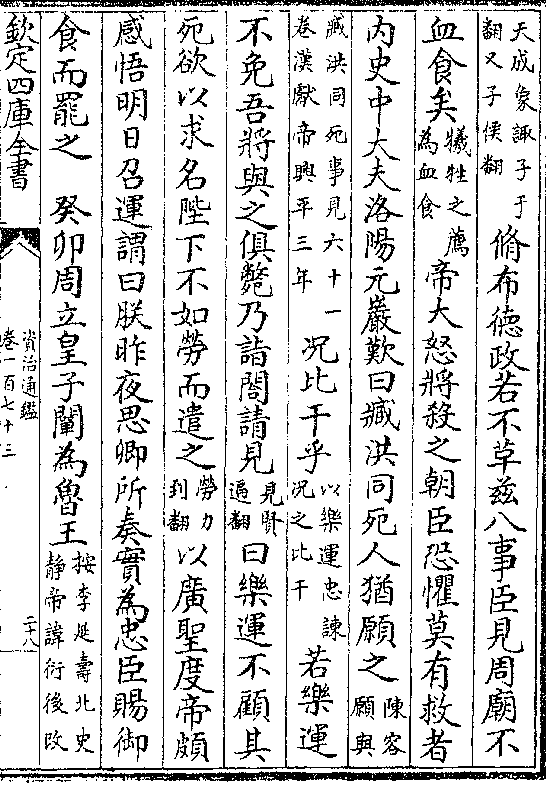 天成象諏子于翻又子侯翻脩布德政若不革兹八事臣見周廟不
血食矣犧牲之薦為血食帝大怒將殺之朝臣恐懼莫有救者
内史中大夫洛陽元巖歎曰臧洪同死人猶願之陳容願與
臧洪同死事見六十一卷漢獻帝興平三年况比干乎以樂運忠諫况之比干若樂運
不免吾將與之俱斃乃詣閤請見見賢遍翻曰樂運不顧其
死欲以求名陛下不如勞而遣之勞力到翻以廣聖度帝頗
感悟明日召運謂曰朕昨夜思卿所奏實為忠臣賜御
食而罷之 癸卯周立皇子闡為魯王按李延壽北史静帝諱衍後改
欽定四庫全書
資治通鑑
卷一百七十三
二十八